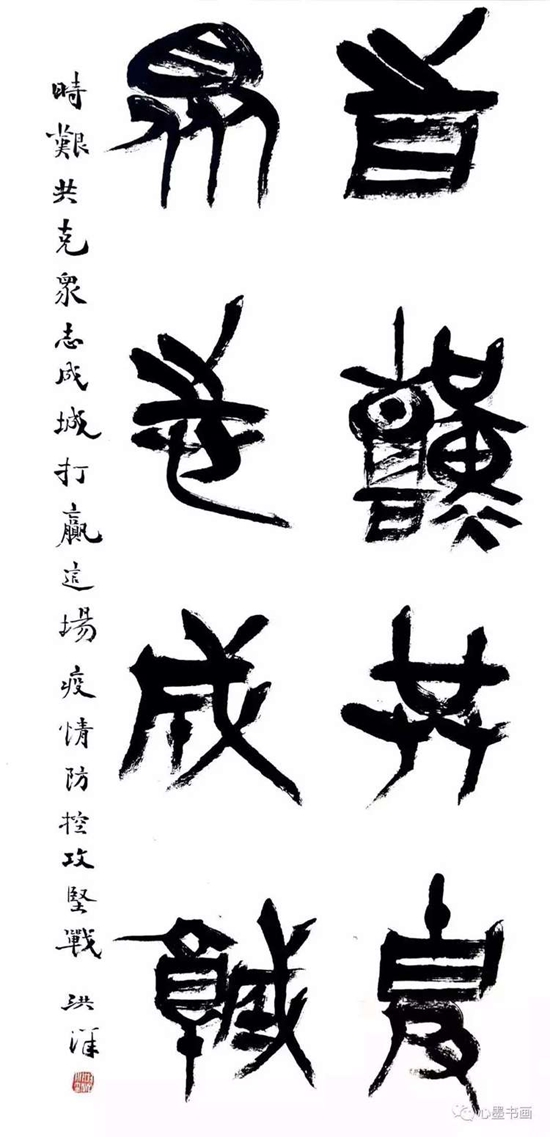 時艱共克
眾志成城
時艱共克眾志成城打贏這場疫情防控攻堅戰 洪洋
心墨书画